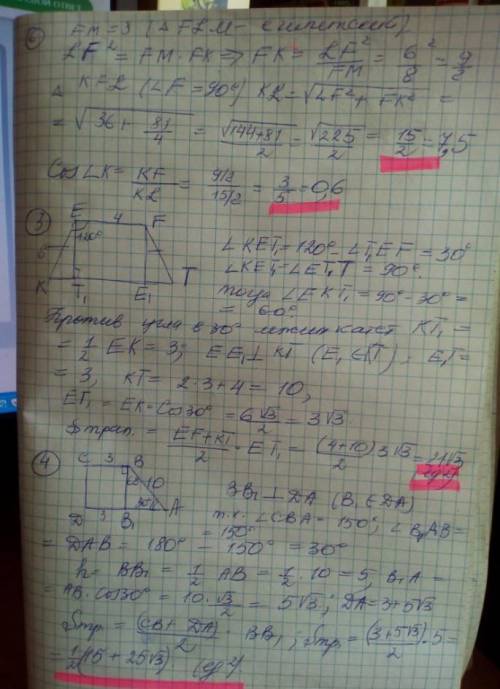 ② FM = 8 (Δ FLM - египетский)
LF² = FM · FK ⇒ FK = LF²/FM = 6²/8 = 9/2
Δ KFL (∠F = 90°) KL = √(LF² + FK²) =
= √(36 + 81/4) = √(144+81)/2 = √225/2 = 15/2 = 7,5
Cos∠K = KF/KL = (9/2)/(15/2) = 3/5 = 0,6
③ E 4 F
120°
6
K T₁ E₁ T
∠KET₁ = 120° - ∠T₁EF = 30°
∠KET₁ = ∠ET₁T = 90°.
тогда ∠EKT₁ = 90° - 30° =
= 60°.
Против угла в 30° лежит катет KT₁ =
= 1/2 EK = 3; EE₁ ⊥ KT (E₁ ∈ KT); E₁T =
= 3, KT = 2·3+4 = 10,
ET₁ = EK·Cos30° = 6 √3/2 = 3√3
Sтрап. = (EF+KT)/2 · ET₁ = (4+10)/2 · 3√3 = 21√3
④ C 3 B
10
D 3 B₁ A
BB₁ ⊥ DA (B₁ ∈ DA)
т.к. ∠CBA = 150°, ∠B₁AB =
= DAB = 180° - 150° = 30°
h = BB₁ = 1/2 AB = 1/2 · 10 = 5, B₁A =
= AB·cos30° = 10 · √3/2 = 5√3; DA = 3+5√3
Sтр = (CB + DA)/2 · BB₁; Sтр = (3+5√3)/2 · 5 =
= 1/2 (15 + 25√3) (ед²)